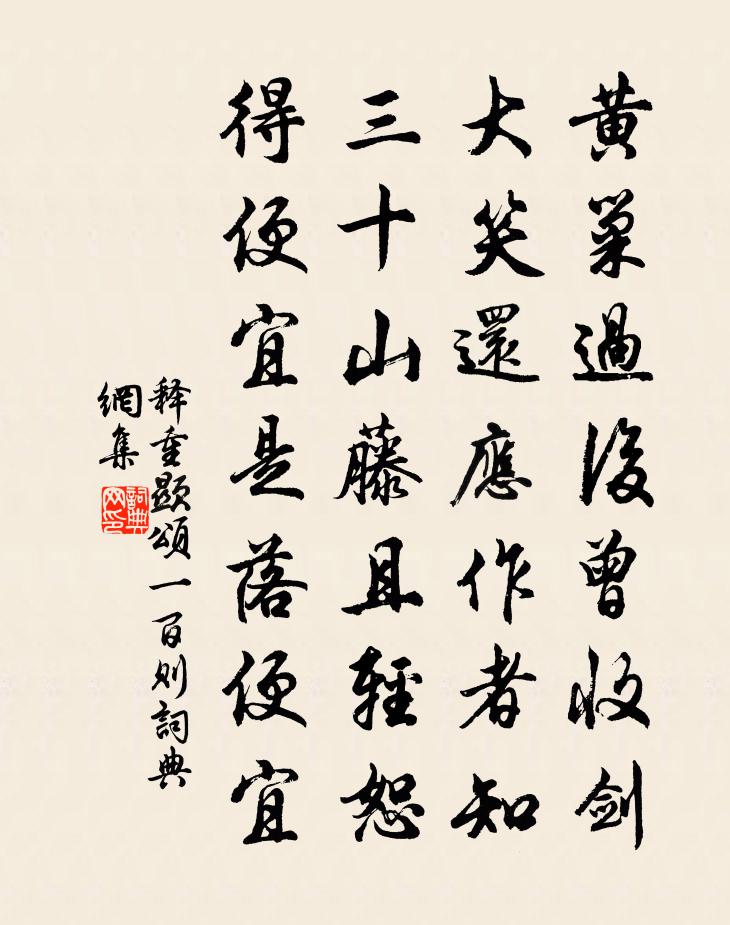 黃巢過後曾收劍
大笑還應作者知
三十山藤且輕恕
得便宜是落便宜
释重顯頌一百则詞典
網集
詞典
网印